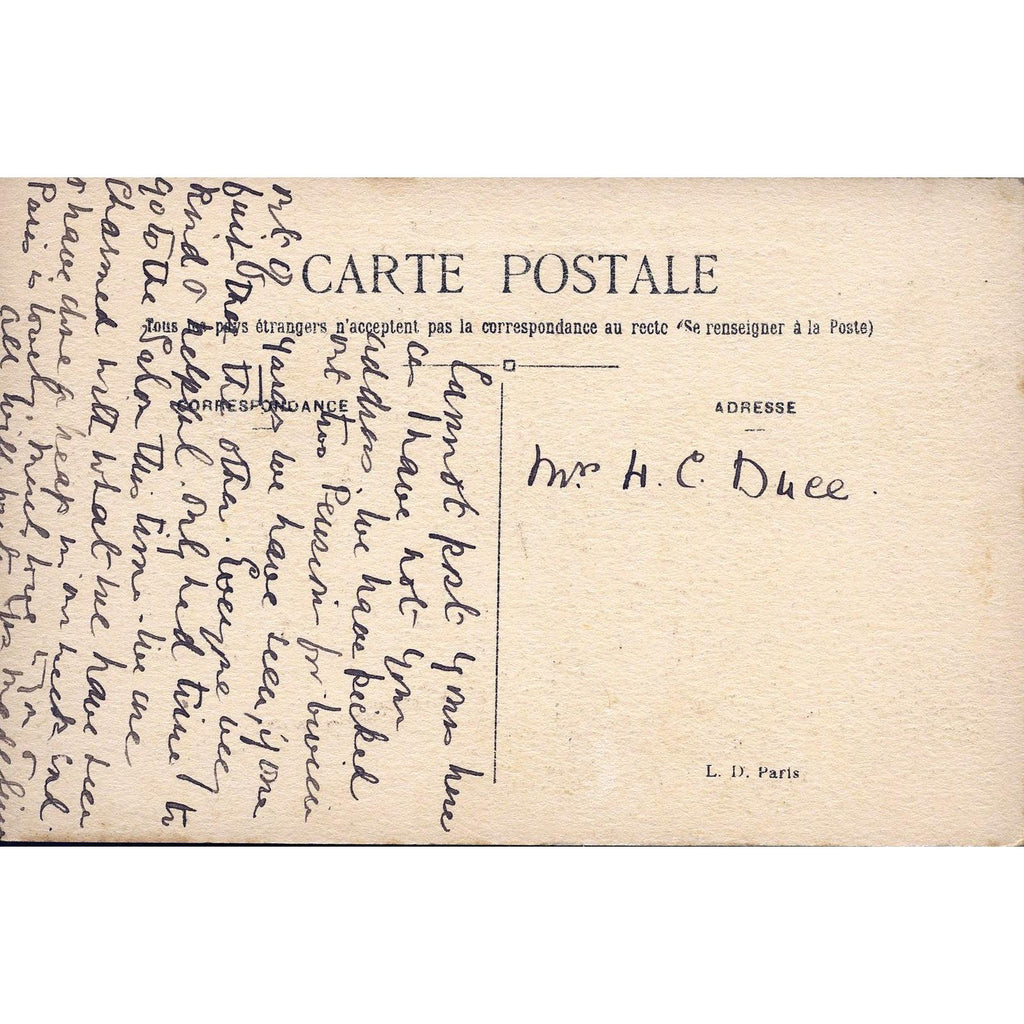 CARTE POSTALE
Tous les pays étrangers n'acceptent pas la correspondance au recto (Se renseigner à la Poste)
CORRESPONDANCE
ADRESSE
Mrs H. C. Duce.
L. D. Paris
Cannot post yours here
as I have not your
address. We have picked
out two Pension for
yours we have seen, if one
full then the other. Everyone very
kind & helpful. Only had time to
go to the Salon this time. We are
Charmed with what we have seen
& have done a heap in our week end.
Paris is lovely. Much love to you &
all